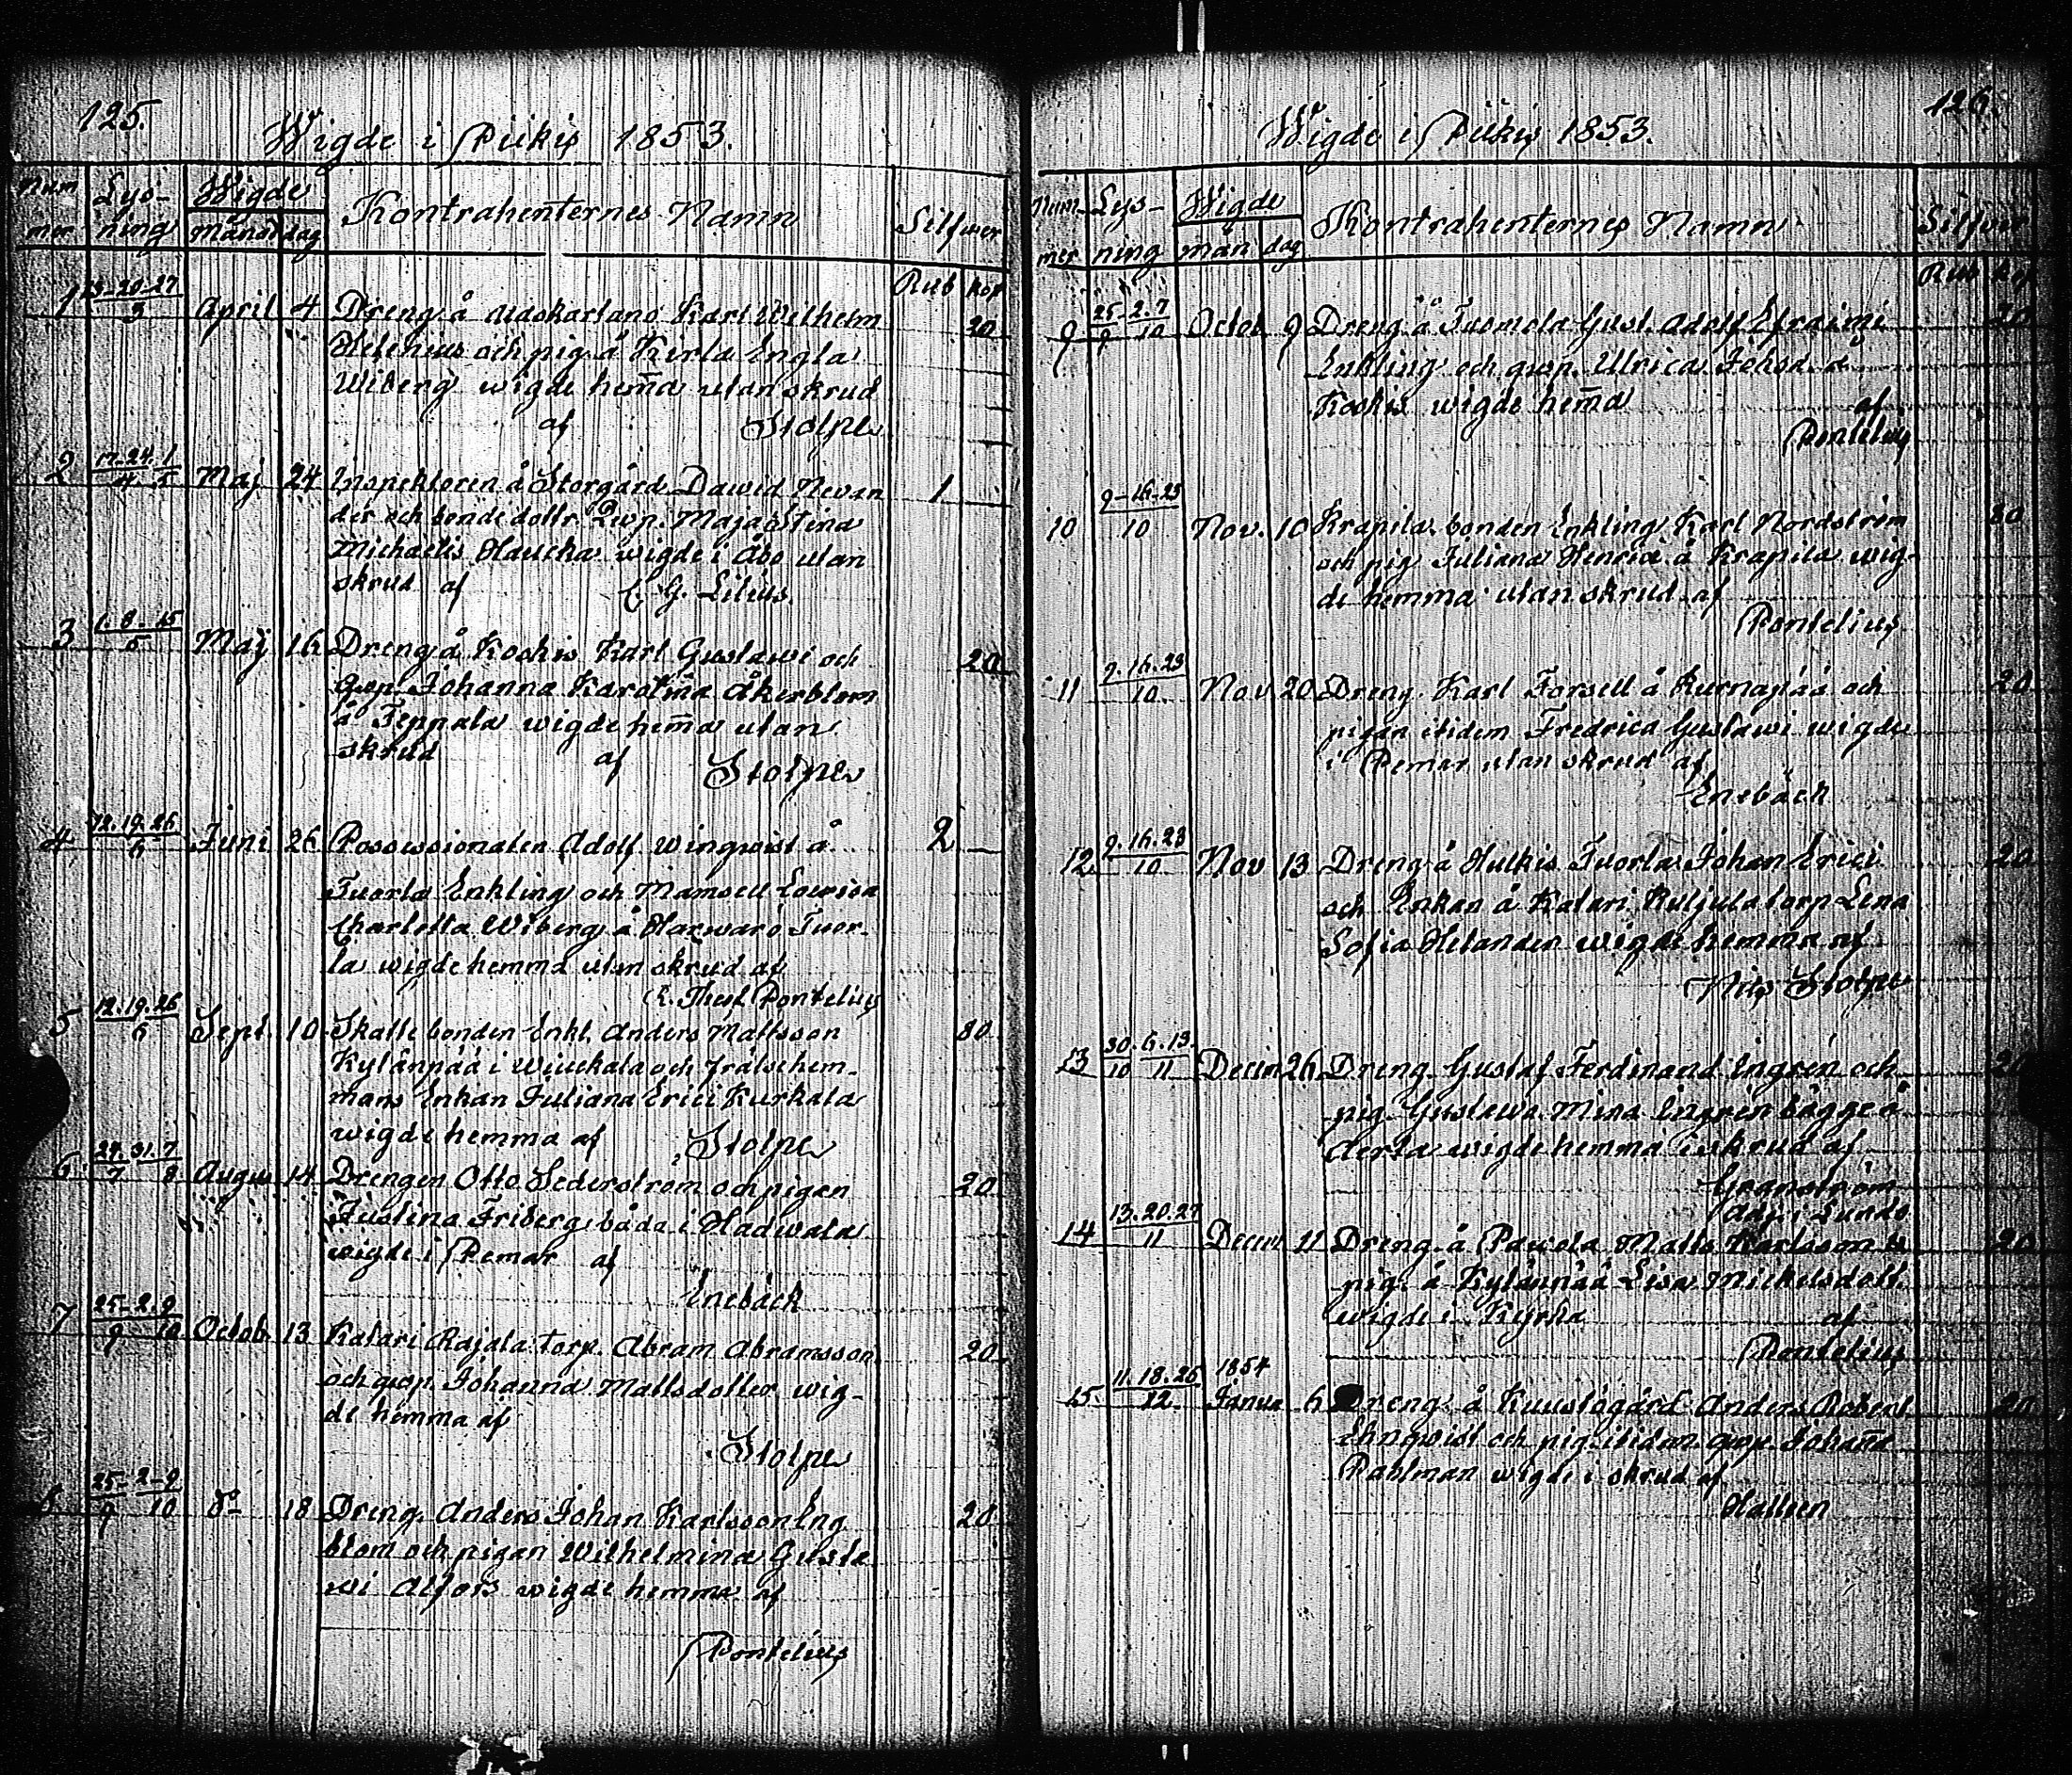 125.
Wigde i Piikis 1853.
Num mer Lys- ning Wigde Månad dag Kontrahenternes Namn Silfwer
Rub kop
1 13-20-27 / 3 April 4 Dreng å Adskartano Karl Wilhelm 20
Helenius och pig å Kirla Engla
Wiberg wigde hem̄a utan skrud
af Stolpe
2 17-24. 1 / 4 5 Maj 24 Inspektoren å Storgård Dawid Nevan 1
der och bonde dottr. Qwp. Maja Stina
Michaelis Haucka wigde i Åbo utan
skrud af C. G. Lilius.
3 1. 8 - 15 / 5 Maj 16 Dreng å Koskis Karl Gustawi och 20
qwp. Johanna Karolina Åkerblom
å Teppala wigde hem̄a utan
skrud af Stolpe
4 12. 19. 26 / 6 Juni 26 Possessionaten Adolf Winqwist å 2 —
Tuorla Enkling och Mamsell Lowisa
Charlotta Wiberg å Harwarö Tuor-
la wigde hemma utan skrud af
K. Theod Pontelius
5 12. 19. 26 / 6 Sept. 10 Skatte bonden Enkl. Anders Mattsson 80
Kylänpää i Wiuckala och frälsehem-
mans Enkan Juliana Erici Kurkala
wigde hemma af Stolpe
6 24. 31. 7 / 7 8 Augus 14 Drengen Otto Sederström och pigan 20
Justina Friberg båda i Hadwala
wigde i Pemar af
Enebäck
7 25 - 2. 9 / 9 10 Octob. 13 Katari Rajala torp. Abram Abramsson 20
och qwp. Johanna Mattsdotter wig-
de hemma af
Stolpe
8 25 - 2 - 9 / 9 10 do 18 Dreng. Anders Johan Karlsson Eng 20
blom och pigan Wilhelmina Gusta
wi Alfors wigde hemma af
Pontelius
126.
Wigde i Piikis 1853.
Num mer Lys- ning Wigde mån dag Kontrahenternes Namn Silfver
Rub kop
9 25 - 2. 7 / 9 10 Octob 9 Dreng å Tuomola Gust. Adolf Efraimi 20
Enkling och qwp. Ulrica Johsd. å
Koskis wigde hem̄a af
Pontelius
10 9 - 16 - 23 / 10 Nov. 10 Krapila bonden Enkling Karl Nordström 80
och pig Juliana Henrici å Krapila wig-
de hemma utan skrud af
Pontelius
11 9. 16. 23 / 10 Nov 20 Dreng. Karl Forsell å Kurnapää och 20
pigan itidem Fredrica Gustawi wigde
i Pemar utan skrud af
Enebäck
12 9. 16. 23 / 10 Nov 13 Dreng å Hulkis Tuorla Johan Erici 20
och Enkan å Katari Kuljula torp Lena
Sofia Helander wigde hemma af
Nils Stolpe
13 30. 6. 13. / 10 11 Decem 26 Dreng Gustaf Ferdinand Engrén och 20
pig. Gustawa Mina Engrén bägge å
Aerla wigde hemma i skrud af
Granström
Adj. i Lundo
14 13. 20. 27 / 11 Decem 11 Dreng å Pawola Matts Karlsson o 20
pig. å Kylänpää Lisa Mickelsdott.
wigde i Kyrka af
Pontelius
15 11. 18. 26 / 12 1854 Janua 6 Dreng å Kuustögård Anders Robert 20
Ehnqwist och pig. itidem qwp. Johan̄a
Pahlman wigde i skrud af
Hallsen